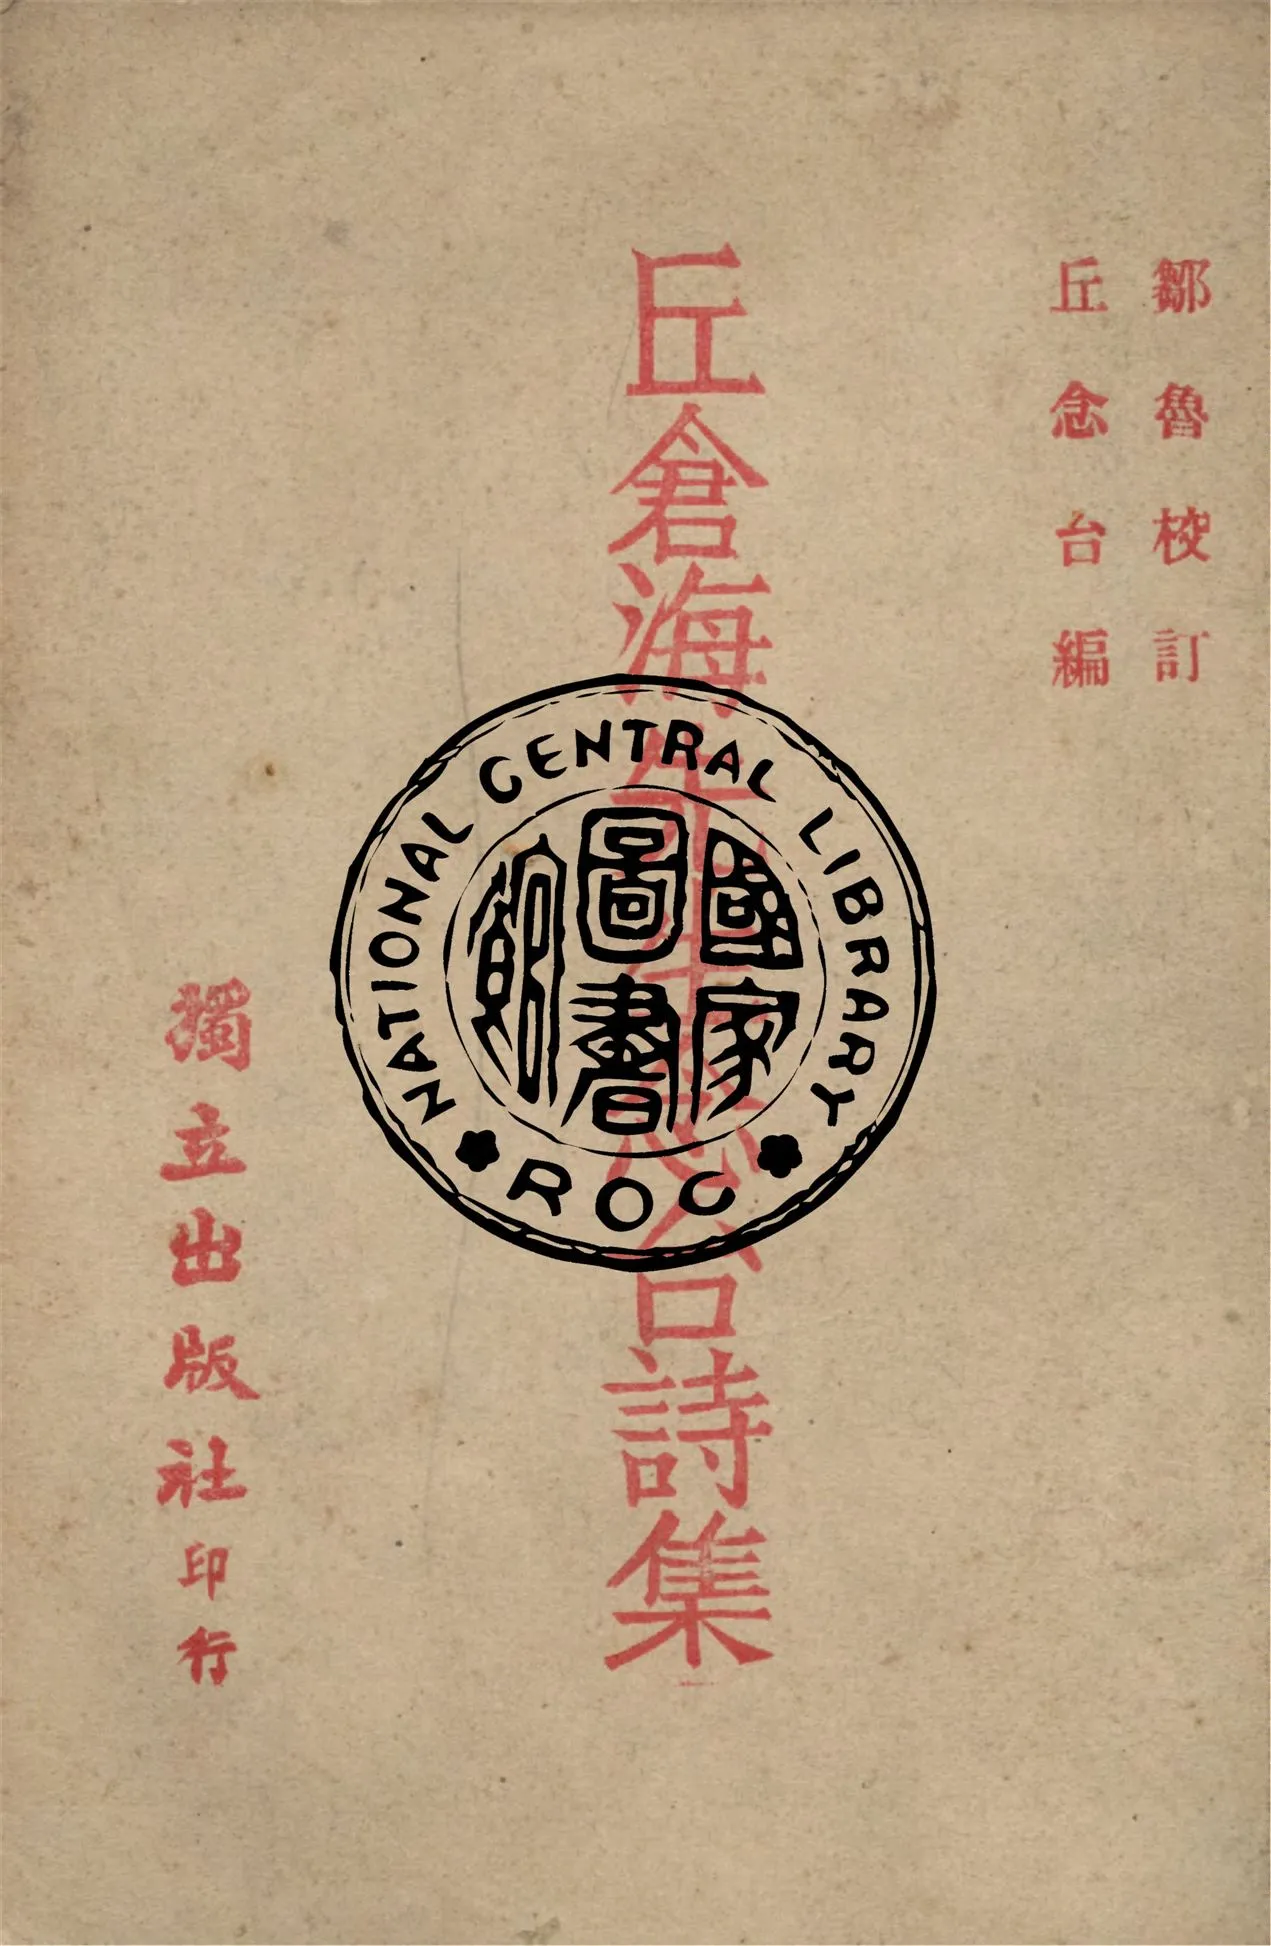 鄒魯校訂
丘念台編
丘倉海先生念台詩集
獨立出版社印行
NATIONAL CENTRAL LIBRARY
國家
圖書
館
ROC